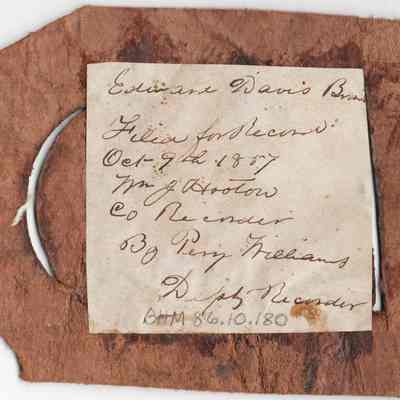 Edward Davis Bran
Filed for Record
Oct 9th 1857
Wm J
Co Recorder
By Perry Williams
Depty Recorder
BHM 86.10.180